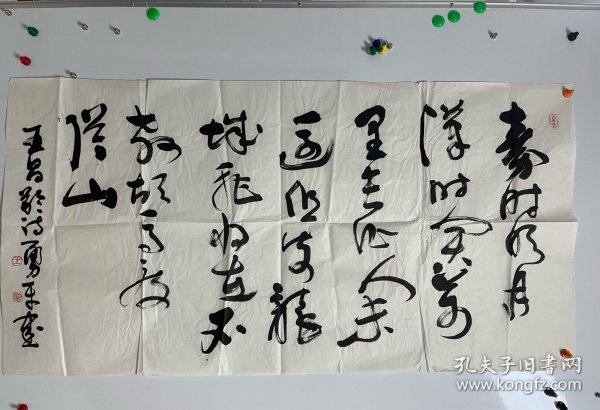 秦时明月
汉时关万
里长征人未
还但使龙
城飞将在不
教胡马度
阴山
王昌龄诗勇平书
孔夫子旧书网
www.kongfz.com